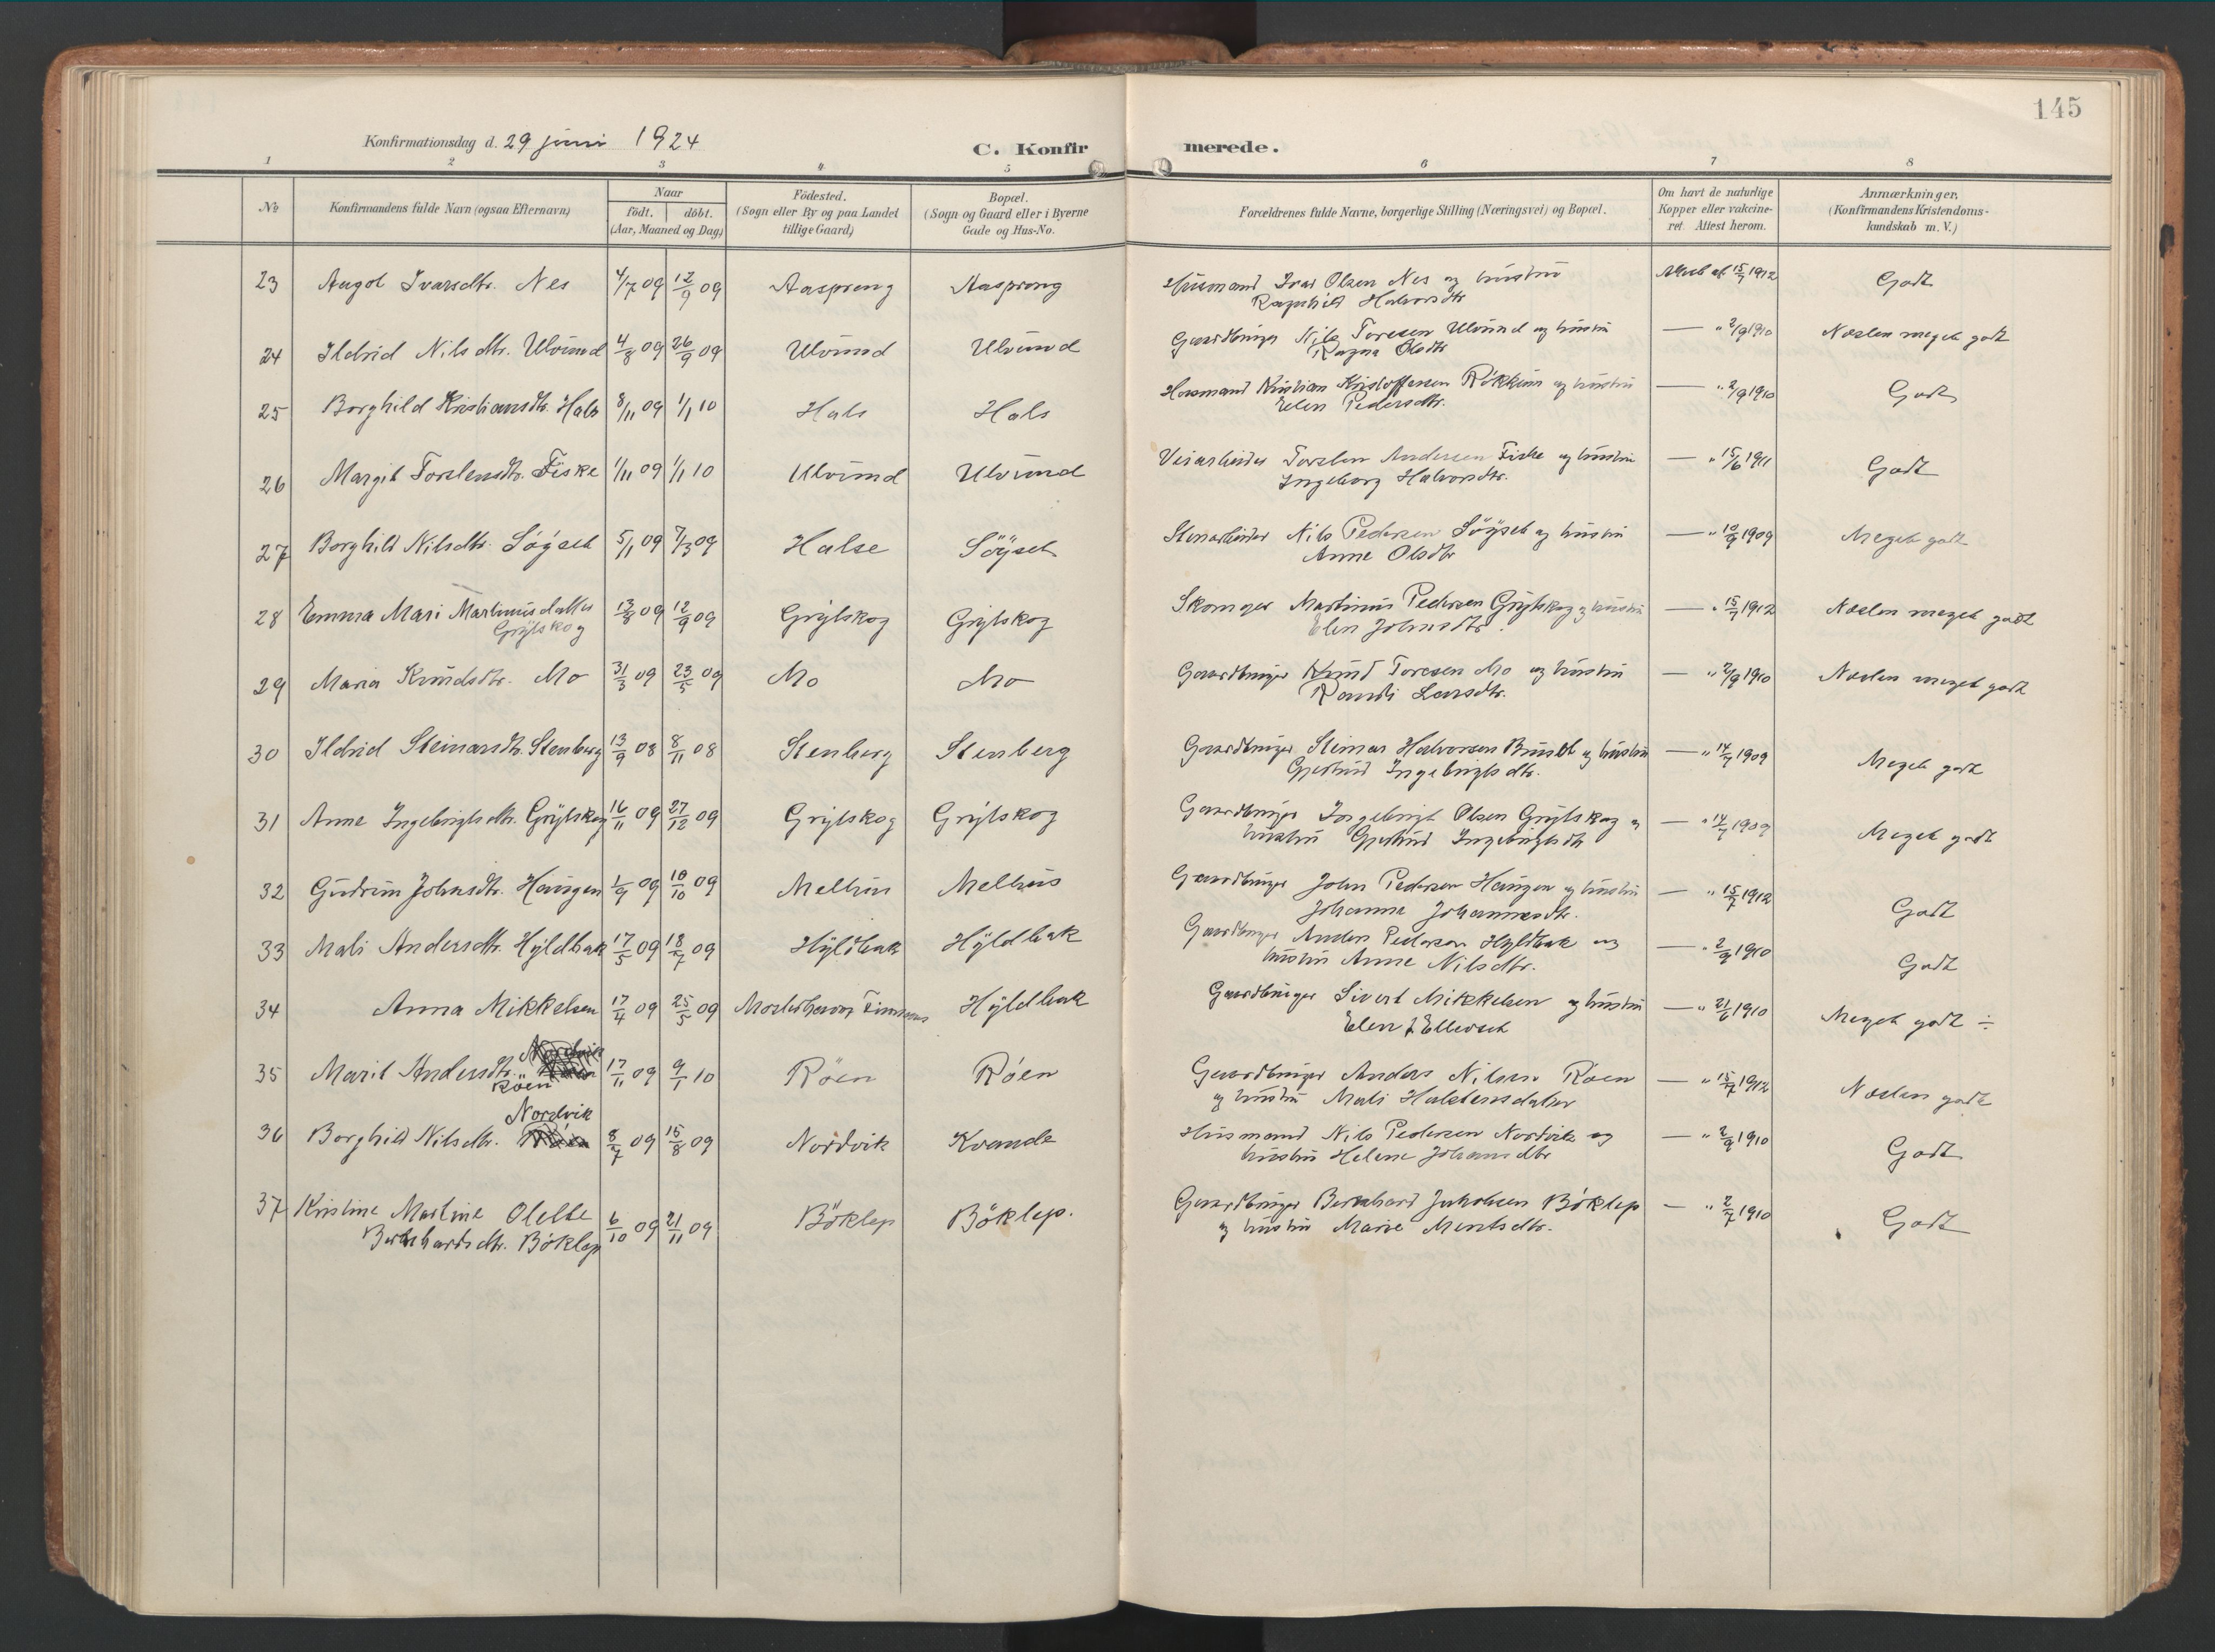 145
Konfirmationsdag d. 29 juni 1924
C. Konfirmerede.
1 2 3 4 5 6 7 8
No Konfirmandens fulde Navn (ogsaa Efternavn) Naar födt. döbt. (Aar, Maaned og Dag) Födested. (Sogn eller By og paa Landet tillige Gaard) Bopæl. (Sogn og Gaard eller i Byerne Gade og Hus-No. Forældrenes fulde Navne, borgerlige Stilling (Næringsvei) og Bopæl. Om havt de naturlige Kopper eller vakcineret. Attest herom. Anmærkninger, (Konfirmandens Kristendomskundskab m. V.)
23 Ivarsdtr. Nes 4/7 09 12/9 09 Aasprong Aasprong Husmand Ivar Olsen Nes og hustru Attest af 15/7 1912 Godt
Ragnhild Halvorsdtr
24 Ildrid Nilsdtr. Ulvund 4/8 09 26/9 09 Ulvund Ulvund Gaardbruger Nils Toresen Ulvund og hustru — " 2/9 1910 Næsten meget godt
Ragna Olsdtr
25 Borghild Kristiansdtr. Hals 8/11 09 1/1 10 Hals Hals Husmand Kristian Kristoffersen Rökkum og hustru — " 2/9 1910 Godt
Elen Pedersdtr.
26 Margit Torstensdtr. Fiske 1/11 09 1/1 10 Ulvund Ulvund Veiarbeider Torsten Andersen Fiske og hustru — " 15/6 1911 Godt
Ingeborg Halvorsdtr.
27 Borghild Nilsdtr. Söyset 5/1 09 7/3 09 Halse Söyset Stenarbeider Nils Pedersen Söyset og hustru — " 10/9 1909 Meget godt
Anne Olsdtr
28 Emma Mari Martinusdatter 13/8 09 12/9 09 Grytskog Grytskog Skomager Martinus Pedersen Grytskog og hustru — " 15/7 1912 Næsten meget godt
Grytskog Elen Johnsdtr.
29 Maria Knudsdtr. Mo 31/3 09 23/5 09 Mo Mo Gaardbruger Knud Toresen Mo og hustru — " 2/9 1910 Næsten meget godt
Randi Larsdtr.
30 Ildrid Steinarsdtr. Stenberg 13/9 08 8/11 08 Stenberg Stenberg Gaardbruger Steinar Halvorsen Bruset og hustru — " 14/7 1909 Meget godt
Gjertrud Ingebrigtsdtr.
31 Anne Ingebrigtsdtr. Grytskog 16/11 09 27/12 09 Grytskog Grytskog Gaardbruger Ingebrigt Olsen Grytskog og — " 14/7 1909 Meget godt
hustru Gjertrud Ingebrigtsdtr
32 Gudrun Johnsdtr. Haugen 1/9 09 10/10 09 Melhus Melhus Gaardbruger John Pedersen Haugen og hustru — " 15/7 1912 Godt
Johanna Johannesdtr.
33 Mali Andersdtr. Hyldbak 17/5 09 18/7 09 Hyldbak Hyldbak Gaardbruger Anders Pedersen Hyldbak og — " 2/9 1910 Godt
hustru Anne Nilsdtr.
34 Anna Mikkelsen 17/4 09 25/5 09 Hyldbak Gaardbruger Sivert Mikkelsen og hustru — " 21/6 1910 Meget godt ÷
Elen J Ellevset
35 Marit Andersdtr. Nordvik 17/11 09 9/1 10 Röen Röen Gaardbruger Anders Nilsen Röen — " 15/7 1912 Næsten godt
Röen og hustru Mali Halstensdatter
36 Borghild Nilsdtr. Nordvik Röen 8/7 09 15/8 09 Nordvik Kvande Husmand Nils Pedersen Nordvik og — " 2/9 1910 Godt
hustru Helene Johansdtr
37 Kristine Martine Olette 6/10 09 21/11 09 Böklep Böklep. Gaardbruger Bernhard Jakobsen Böklep — " 2/7 1910 Godt
Bernhardsdtr. Böklep og hustru Marie Mentsdtr.